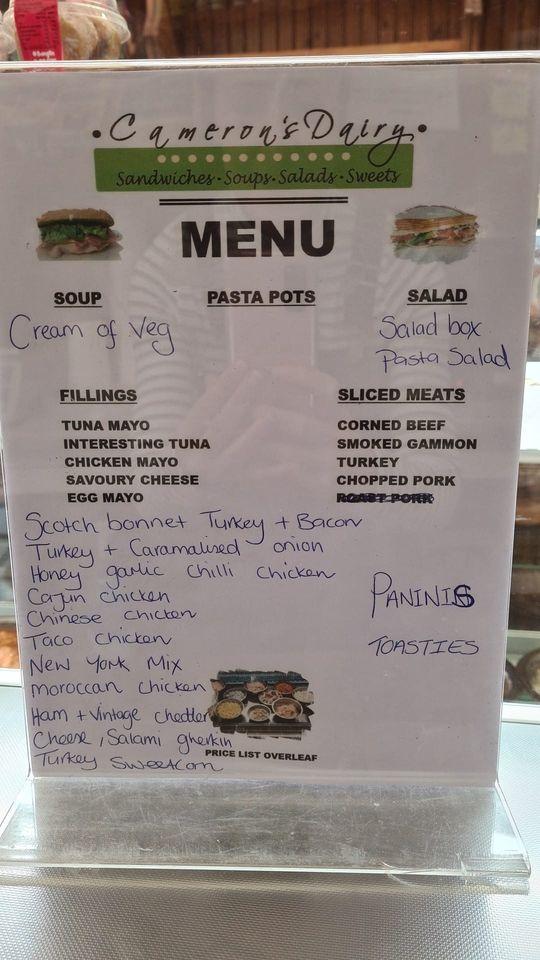 Cameron's Dairy
Sandwiches · Soups · Salads · Sweets
MENU
SOUP
Cream of Veg
PASTA POTS
SALAD
Salad box
Pasta Salad
FILLINGS
TUNA MAYO
INTERESTING TUNA
CHICKEN MAYO
SAVOURY CHEESE
EGG MAYO
SLICED MEATS
CORNED BEEF
SMOKED GAMMON
TURKEY
CHOPPED PORK
ROAST PORK
Scotch bonnet Turkey + Bacon
Turkey + Caramalised onion
Honey garlic chilli chicken
Cajun chicken
Chinese chicken
Taco chicken
New York Mix
moroccan chicken
Ham + vintage chedder
Cheese, Salami gherkin
Turkey Sweetcorn
PANINIS
TOASTIES
PRICE LIST OVERLEAF